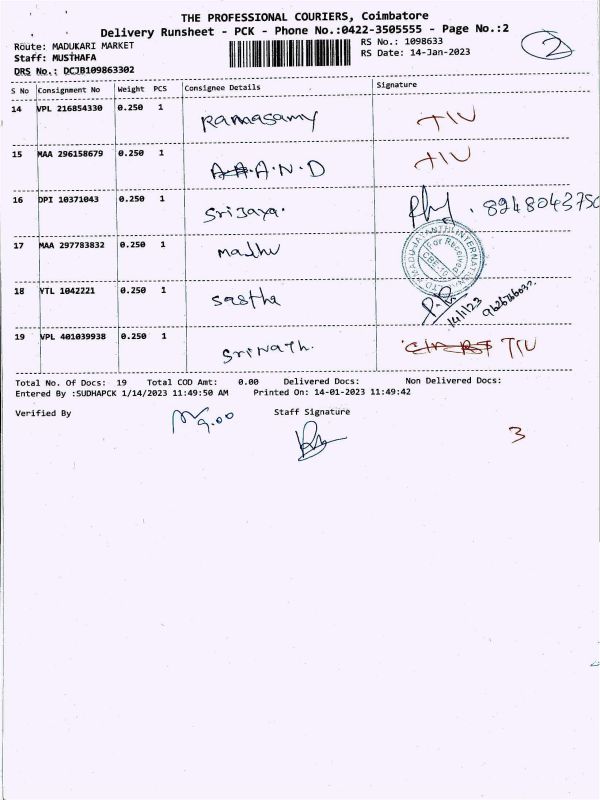 THE PROFESSIONAL COURIERS, Coimbatore
Delivery Runsheet - PCK - Phone No.:0422-3505555 - Page No.:2
2
Route: MADUKARI MARKET
RS No.: 1098633
Staff: MUSTHAFA
RS Date: 14-Jan-2023
DRS No.: DCJB109863302
S No Consignment No Weight PCS Consignee Details Signature
14 VPL 216854330 0.250 1 Ramasamy TIU
15 MAA 296158679 0.250 1 A.N.D TIU
16 DPI 10371043 0.250 1 Srijaya. 8248043750
17 MAA 297783832 0.250 1 Madhu
For Received
18 VTL 1042221 0.250 1 Sastha
14/1/23
19 VPL 401039938 0.250 1 Srinath. TIU
Total No. Of Docs: 19 Total COD Amt: 0.00 Delivered Docs: Non Delivered Docs:
Entered By :SUDHAPCK 1/14/2023 11:49:50 AM Printed On: 14-01-2023 11:49:42
Verified By 9.00 Staff Signature
3